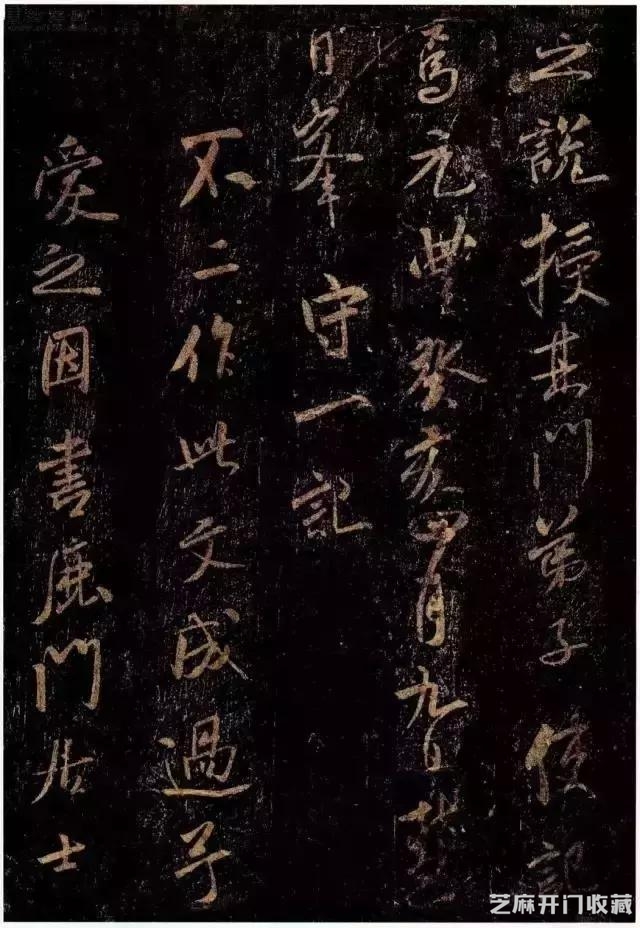 之說授其門弟子使記
焉元豐癸亥四月九日慧
日峯 守一記
不二作此文成過予
愛之因書鹿門居士
芝麻开门收藏